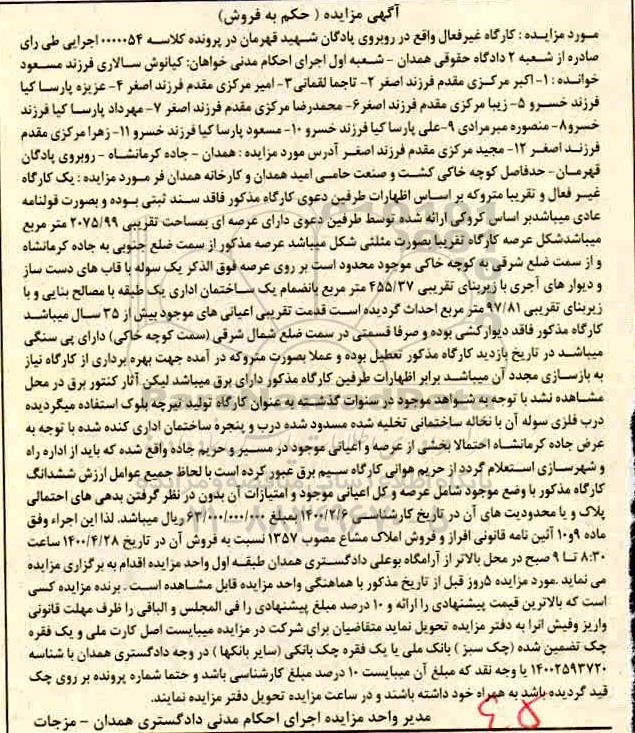 آگهی مزایده ( حکم به فروش)
مورد مزایده : کارگاه غیرفعال واقع در روبروی پادگان شهید قهرمان در پرونده کلاسه ۰۰۰۰۰۵۴ اجرایی طی رای
صادره از شعبه ۲ دادگاه حقوقی همدان - شعبه اول اجرای احکام مدنی خواهان: کیانوش سالاری فرزند مسعود
خوانده : ۱- اکبر مرکزی مقدم فرزند اصغر ۲- تاجما لقمانی ۳- امیر مرکزی مقدم فرزند اصغر ۴- عزیزه پارسا کیا
فرزند خسرو ۵- زیبا مرکزی مقدم فرزند اصغر ۶- محمدرضا مرکزی مقدم فرزند اصغر ۷- مهرداد پارسا کیا فرزند
خسرو ۸- منصوره میرمرادی ۹-علی پارسا کیا فرزند خسرو ۱۰- مسعود پارسا کیا فرزند خسرو ۱۱- زهرا مرکزی مقدم
فرزند اصغر ۱۲- مجید مرکزی مقدم فرزند اصغر آدرس مورد مزایده : همدان - جاده کرمانشاه - روبروی پادگان
قهرمان- حدفاصل کوچه خاکی کشت و صنعت حامی امید همدان و کارخانه همدان فر مورد مزایده : یک کارگاه
غیر فعال و تقریبا متروکه بر اساس اظهارات طرفین دعوی کارگاه مذکور فاقد سند ثبتی بوده و بصورت قولنامه
عادی میباشد بر اساس کروکی ارائه شده توسط طرفین دعوی دارای عرصه ای بمساحت تقریبی ۲۰۷۵/۹۹ متر مربع
میباشد شکل عرصه کارگاه تقریبا بصورت مثلثی شکل میباشد عرصه مذکور از سمت ضلع جنوبی به جاده کرمانشاه
و از سمت ضلع شرقی به کوچه خاکی موجود محدود است بر روی عرصه فوق الذکر یک سوله با قاب های دست ساز
و دیوار های آجری با زیربنای تقریبی ۴۵۵/۳۷ متر مربع بانضمام یک ساختمان اداری یک طبقه با مصالح بنایی و با
زیربنای تقریبی ۹۷/۸۱ متر مربع احداث گردیده است قدمت تقریبی اعیانی های موجود بیش از ۳۵ سال میباشد
کارگاه مذکور فاقد دیوارکشی بوده و صرفا قسمتی در سمت ضلع شمال شرقی (سمت کوچه خاکی) دارای پی سنگی
میباشد در تاریخ بازدید کارگاه مذکور تعطیل بوده و عملا بصورت متروکه در آمده جهت بهره برداری از کارگاه نیاز
به بازسازی مجدد آن میباشد برابر اظهارات طرفین کارگاه مذکور دارای برق میباشد لیکن آثار کنتور برق در محل
مشاهده نشد با توجه به شواهد موجود در سنوات گذشته به عنوان کارگاه تولید تیرچه بلوک استفاده میگردیده
درب فلزی سوله آن با نخاله ساختمانی تخلیه شده مسدود شده درب و پنجره ساختمان اداری کنده شده با توجه به
عرض جاده کرمانشاه احتمالا بخشی از عرصه و اعیانی موجود در مسیر و حریم جاده واقع شده که باید از اداره راه
و شهرسازی استعلام گردد از حریم هوائی کارگاه سیم برق عبور کرده است با لحاظ جمیع عوامل ارزش ششدانگ
کارگاه مذکور با وضع موجود شامل عرصه و کل اعیانی موجود و امتیازات آن بدون در نظر گرفتن بدهی های احتمالی
پلاک و یا محدودیت های آن در تاریخ کارشناسی ۱۴۰۰/۲/۶ بمبلغ ۶۳/۰۰۰/۰۰۰/۰۰۰ ریال میباشد. لذا این اجراء وفق
ماده ۹و۱۰ آئین نامه قانونی افراز و فروش املاک مشاع مصوب ۱۳۵۷ نسبت به فروش آن در تاریخ ۱۴۰۰/۴/۲۸ ساعت
۸:۳۰ تا ۹ صبح در محل بالاتر از آرامگاه بوعلی دادگستری همدان طبقه اول واحد مزایده اقدام به برگزاری مزایده
می نماید .مورد مزایده ۵روز قبل از تاریخ مذکور با هماهنگی واحد مزایده قابل مشاهده است . برنده مزایده کسی
است که بالاترین قیمت پیشنهادی را ارائه و ۱۰ درصد مبلغ پیشنهادی را فی المجلس و الباقی را ظرف مهلت قانونی
واریز وفیش انرا به دفتر مزایده تحویل نماید متقاضیان برای شرکت در مزایده میبایست اصل کارت ملی و یک فقره
چک تضمین شده (چک سبز ) بانک ملی یا یک فقره چک بانکی (سایر بانکها ) در وجه دادگستری همدان با شناسه
۱۴۰۰۲۵۹۳۷۲۰ یا وجه نقد که مبلغ آن میبایست ۱۰ درصد مبلغ کارشناسی باشد و حتما شماره پرونده بر روی چک
قید گردیده باشد به همراه خود داشته باشند و در ساعت مزایده تحویل دفتر مزایده نمایند.
مدیر واحد مزایده اجرای احکام مدنی دادگستری همدان - مزجات